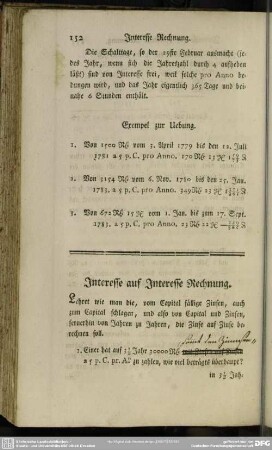 152 Interesse Rechnung.
Die Schalttage, so der 29ste Februar ausmacht (je-
des Jahr, wenn sich die Jahrzahl durch 4 aufheben
läßt) sind von Interesse frei, weil solche pro Anno be-
dungen wird, und das Jahr eigentlich 365 Tage und bei-
nahe 6 Stunden enthält.
Exempel zur Uebung.
1. Von 1500 Rthl vom 3. April 1779 bis den 12. Juli
1781 a 5 p. C. pro Anno. 170 Rthl 23
2. Von 3154 Rthl vom 6. Nov. 1780 bis den 25. Jan.
1783. a 5 p. C. pro Anno. 349 Rthl 23
3. Von 672 Rthl 15 vom 1. Jan. bis zum 17. Sept.
1783. a 5 p. C. pro Anno. 23 Rthl 22
Interesse auf Interesse Rechnung.
Lehret wie man die, vom Capital fällige Zinsen, auch
zum Capital schlagen, und also von Capital und Zinsen,
fernerhin von Jahren zu Jahren, die Zinse auf Zinse be-
rechnen soll.
1. Einer hat auf Jahr 30000 Rthl
a 5 p. C. pr. Ao zu zahlen, wie viel beträgts überhaupt?
in 3½ Jah-